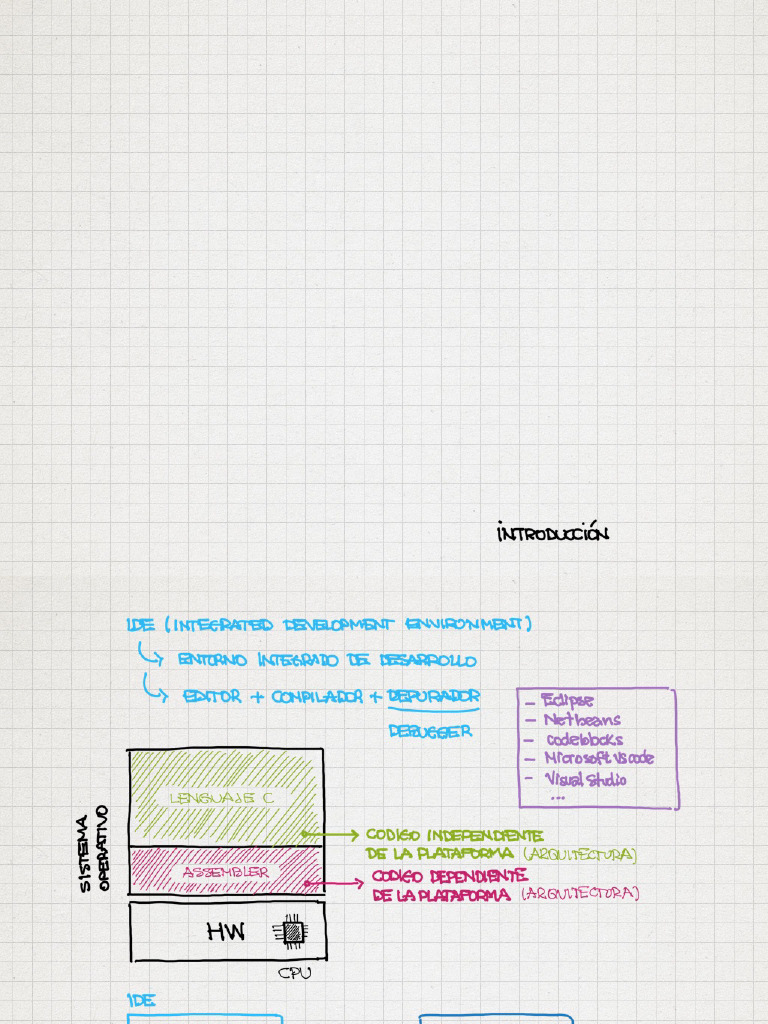 INTRODUCCIÓN
IDE (INTEGRATED DEVELOPMENT ENVIRONMENT)
ENTORNO INTEGRADO DE DESARROLLO
EDITOR + COMPILADOR + DEPURADOR
DEBUGGER
- Eclipse
- Netbeans
- codeblocks
- Microsoft Vscode
- Visual Studio
...
LENGUAJE C
SISTEMA
OPERATIVO
CODIGO INDEPENDIENTE
DE LA PLATAFORMA (ARQUITECTURA)
ASSEMBLER
CODIGO DEPENDIENTE
DE LA PLATAFORMA (ARQUITECTURA)
HW
CPU
IDE